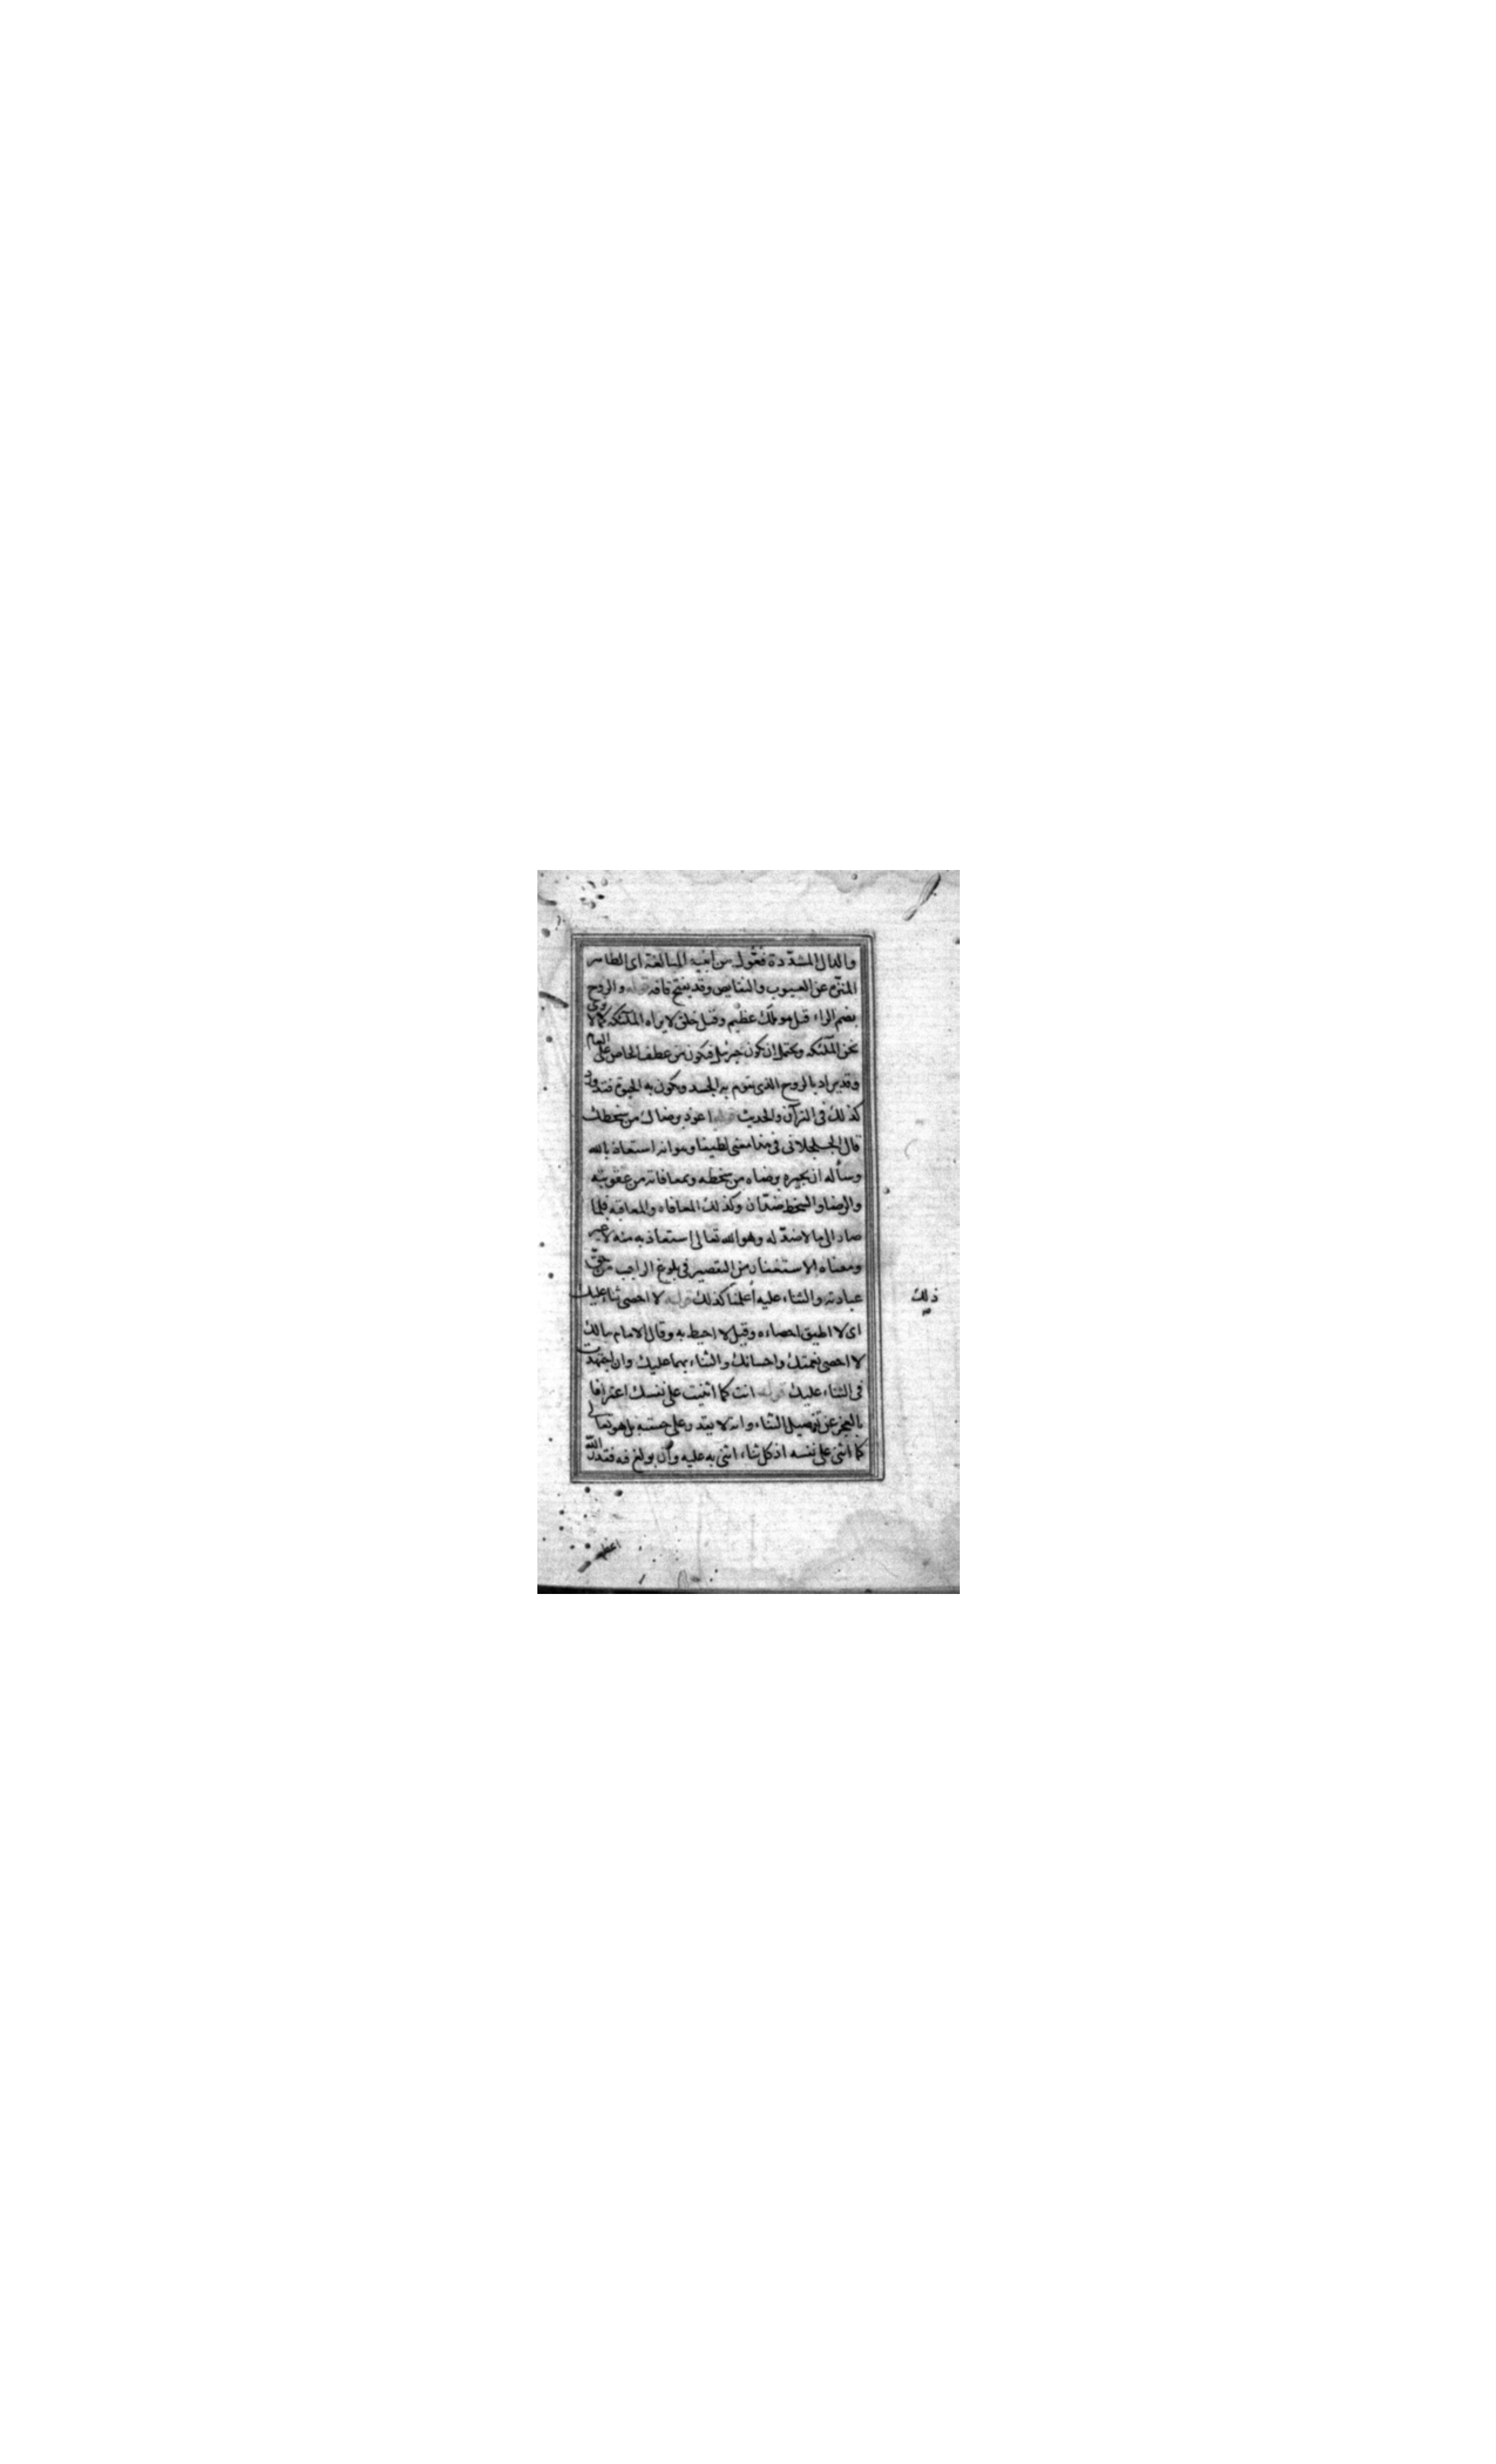 والدال المشدّدة فعّول من ابنية المبالغة اى الطاهر
المنزه عن العيوب والنقايص وقد يفتح قافه قوله والروح
بضم الراء قيل هو ملك عظيم وقيل خلق لا يراه الملئكة كما لا نرى
نحن الملئكة ويحتمل ان يكون جبرئيل فيكون من عطف الخاص على العام
وقد يراد بالروح الذى يقوم به الجسد ويكون به الحيوة فقد ورد
كذلك فى القرآن والحديث قوله اعوذ برضاك من سخطك
قال فى هذا معنى لطيفا وهو انه استعاذ بالله
وسأله ان يجيره برضاه من سخطه وبمعافاته من عقوبته
والرضا والسخط ضدّان وكذلك المعافاه والمعاقبه فلما
صار الى ما لا ضدّ له وهو الله تعالى استعاذ به منه لا غير
ومعناه الاستغفار من التقصير فى بلوغ الواجب من حقّ
عبادته والثناء عليه كذلك قوله لا احصى ثناء عليك
ذلك
اى لا اطيق احصاءه وقيل لا احيط به وقال الامام مالك
لا احصى نعمتك واحسانك والثناء بهما عليك وان اجتهدت
فى الثناء عليك قوله انت كما اثنيت على نفسك اعترافا
بالعجز عن تفصيل الثناء وانه لا يقدر على بل هو تعالى
كما اثنى على نفسه اذ كل ثناء اثنى به عليه وان بولغ فيه فقدر الله
اعظم